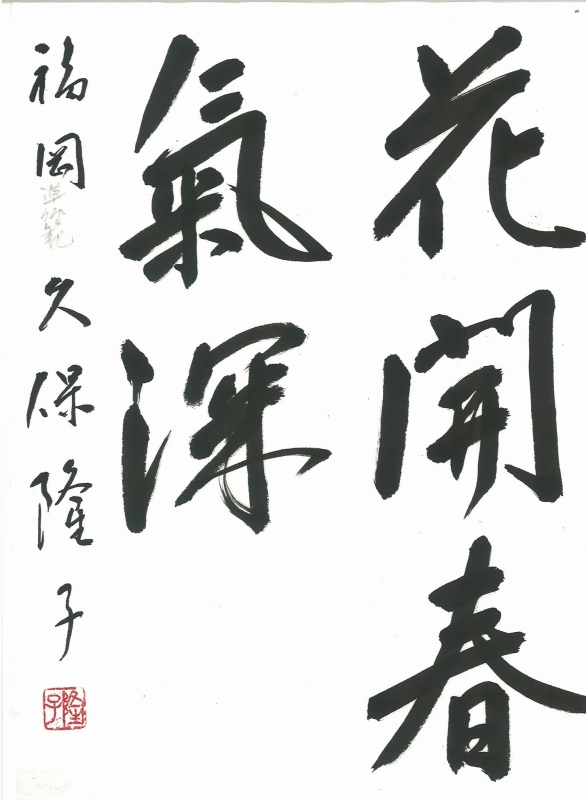 花開春
氣深
福岡 準師範 久保隆子
隆子